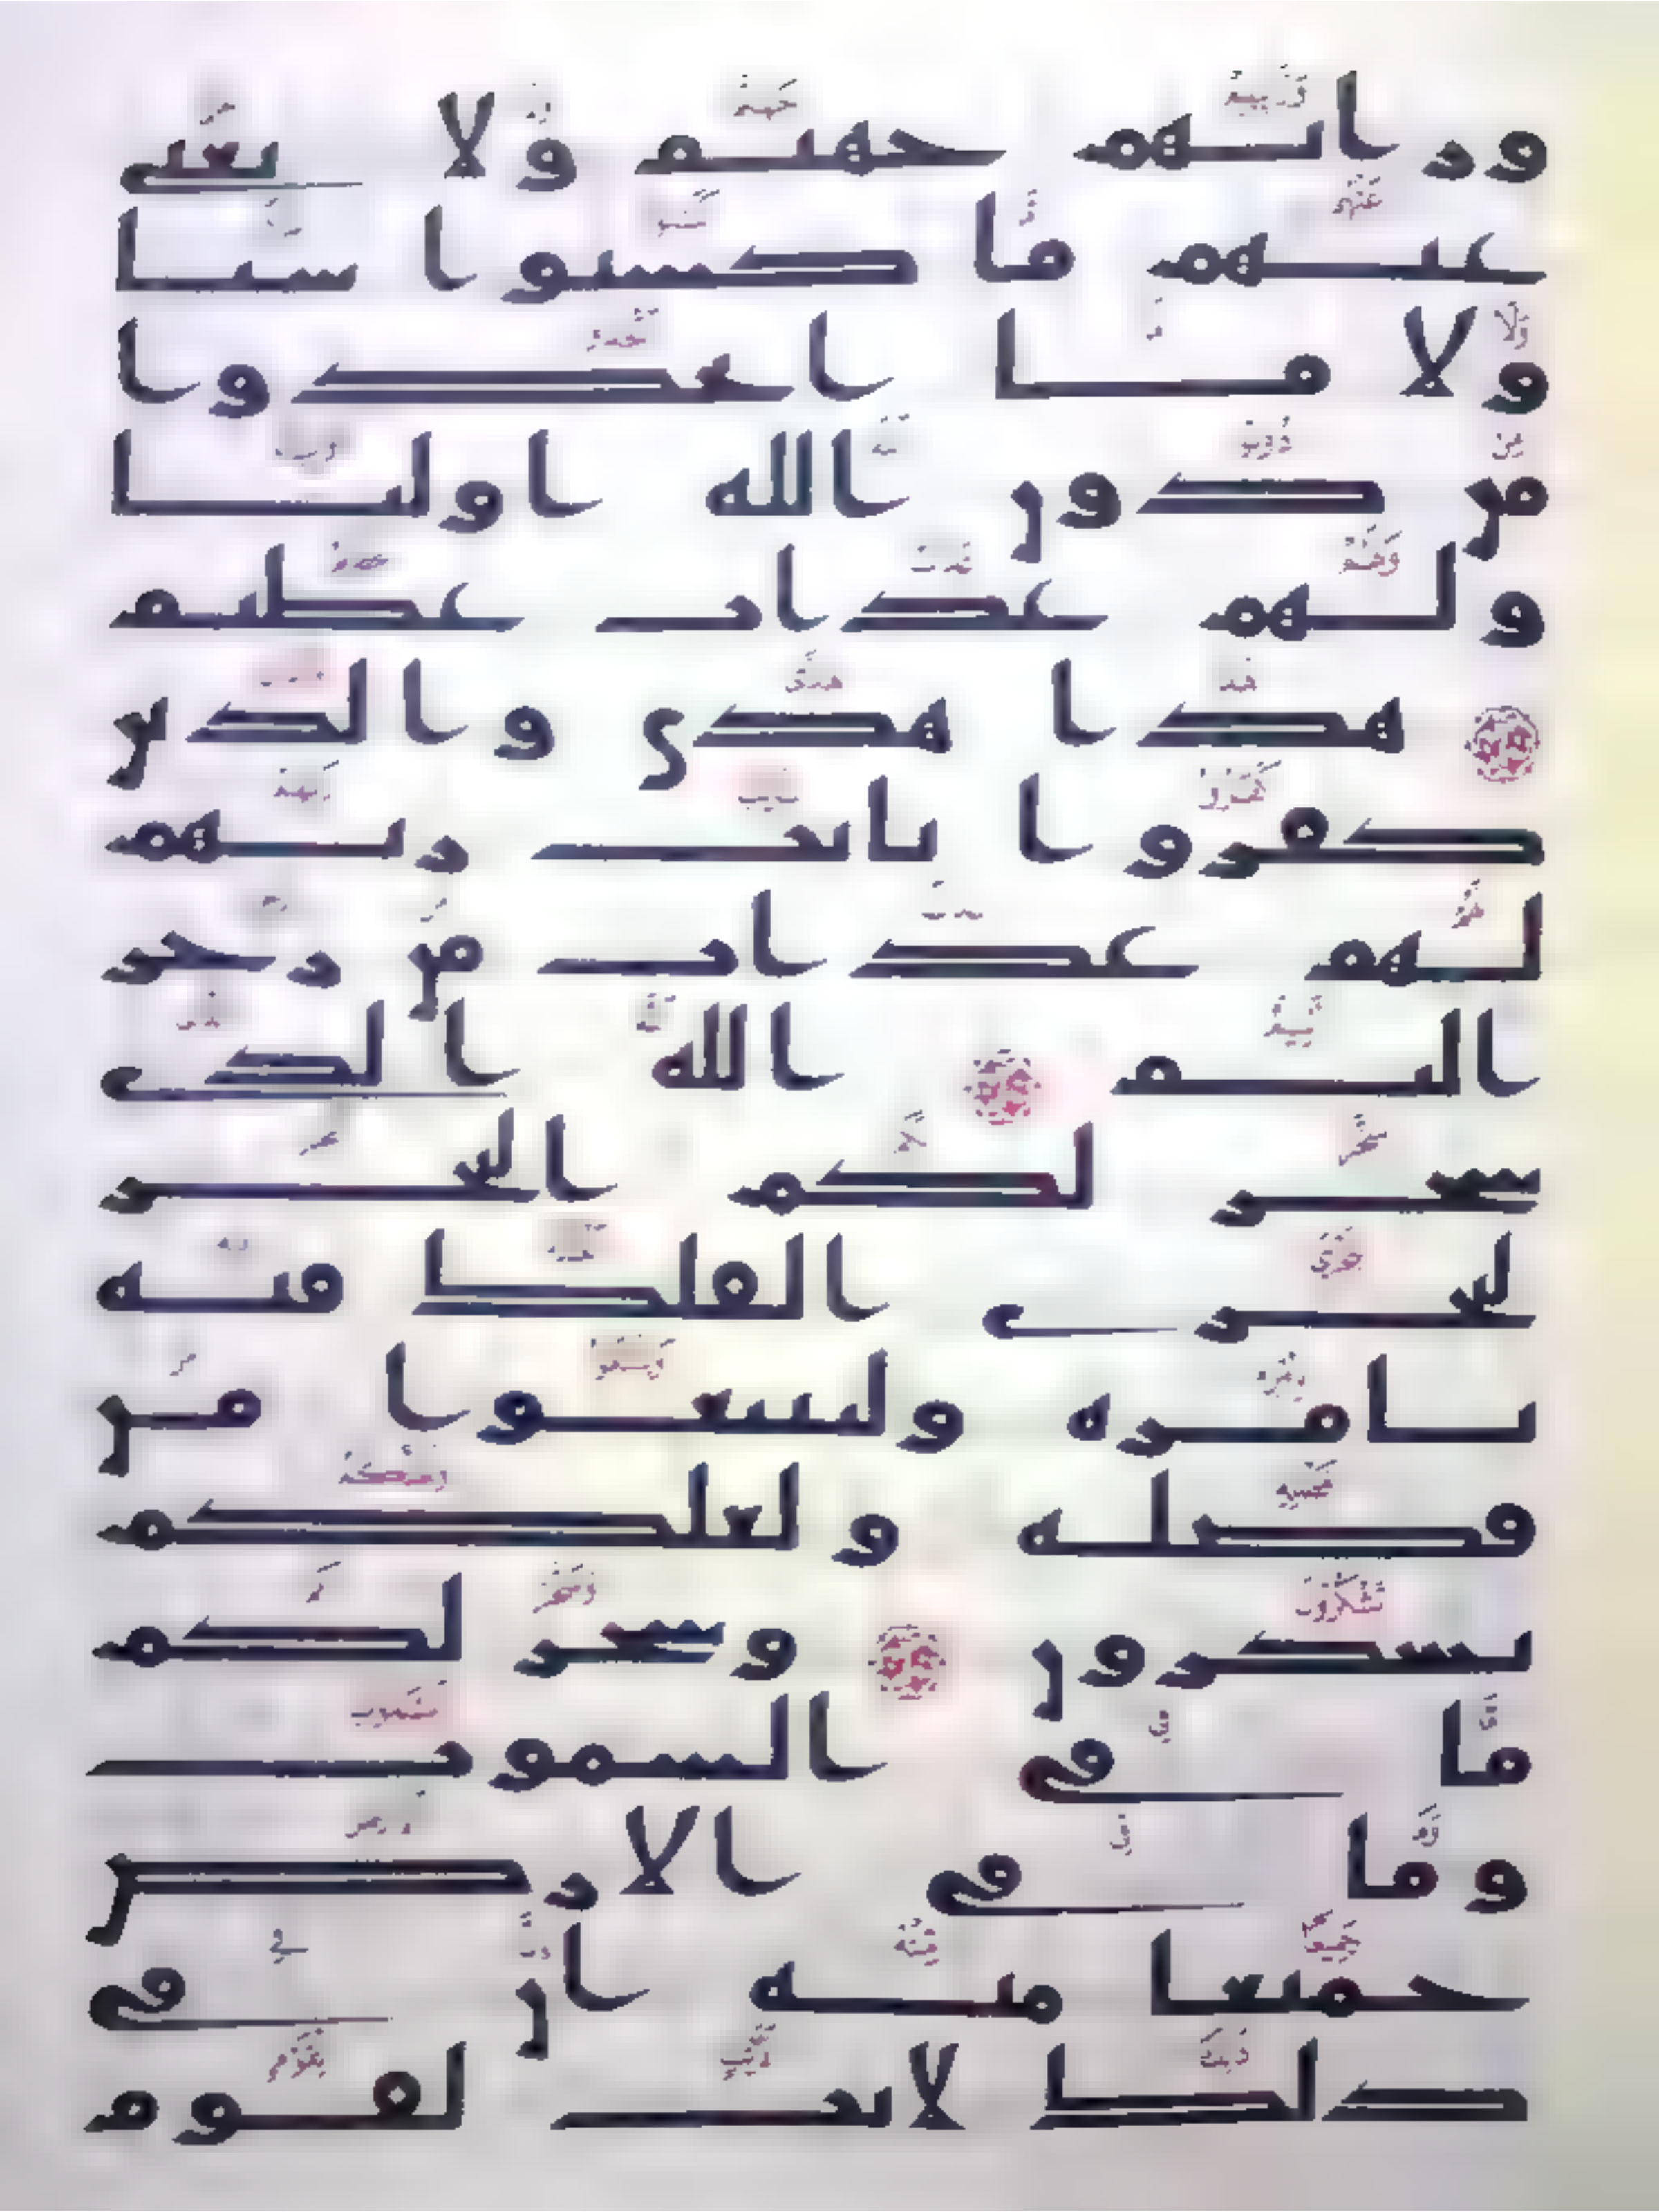 ورائهم جهنم ولا يغني
عنهم ما كسبوا شيا
ولا ما اتخذوا
من دون الله اوليا
ولهم عذاب عظيم
هذا هدي والذين
كفروا بايت ربهم
لهم عذاب من رجز
اليم الله الذي
سخر لكم البحر
لتجري الفلك فيه
بامره ولتبتغوا من
فضله ولعلكم
تشكرون وسخر لكم
ما في السموت
وما في الارض
جميعا منه ان في
ذلك لايت لقوم